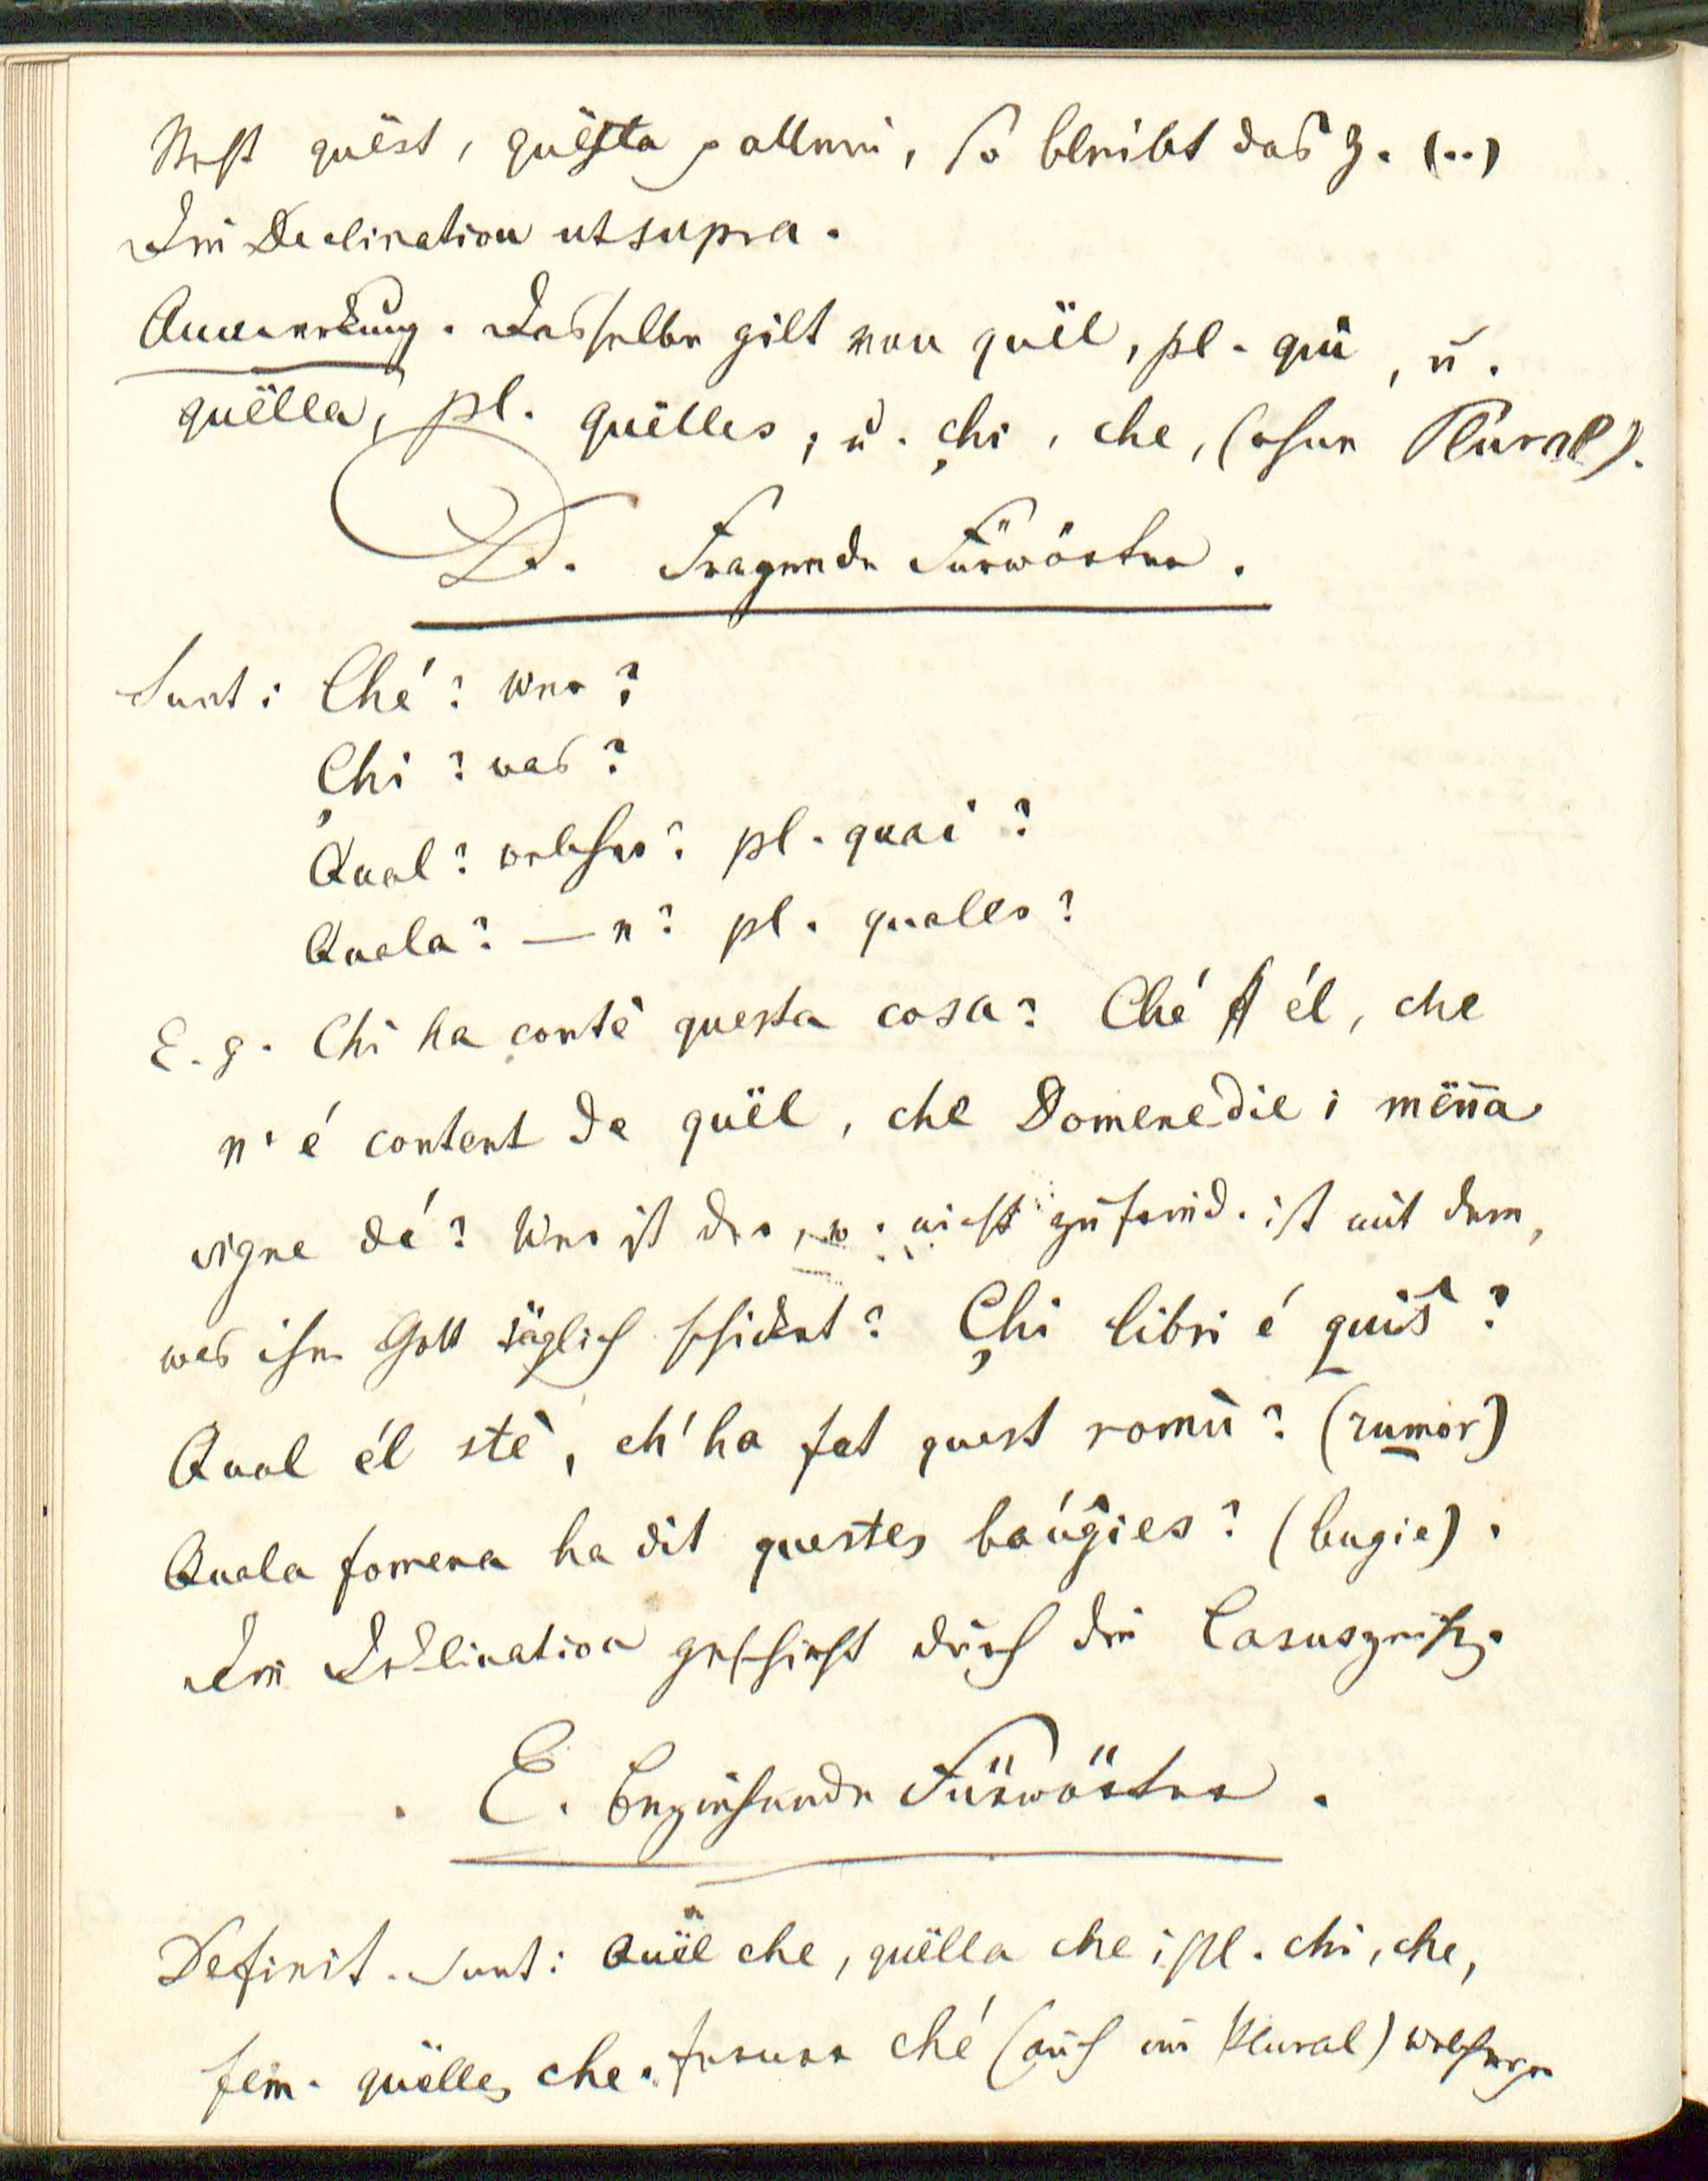 Steht quëst, quësta allein, so bleibt das Z. (..)
Die Declination ut supra.
Anmerkung. Dasselbe gilt von quël, pl. qui, u.
quëlla, pl. quëlles, u. c̦hi, che, (ohne Plural).
D. Fragende Fürwörter.
Sunt: Ché? wer?
C̦hi? was?
Qual? welcher? pl. quai?
Quala? — e? pl. quales?
E. g. Chi ha conté questa cosa? Ché él, che
n' é content de quël, che Domenedie i mën̄a
vigne dé? Wer ist der, w. nicht zufried. ist mit dem,
was ihm Gott täglich schicket? C̦hi libri é quiš?
Qual él sté, ch' ha fat quest romù? (rumor)
Quala fomena ha dit questes baúg̑ies? (bugie).
Die Deklination geschieht durch die Casuszeich.
E. Beziehende Fürwörter.
Definit. sunt: Quël che, quëlla che; pl. chi, che,
fem. quëlles che. ferner ché (auch im Plural) welcher